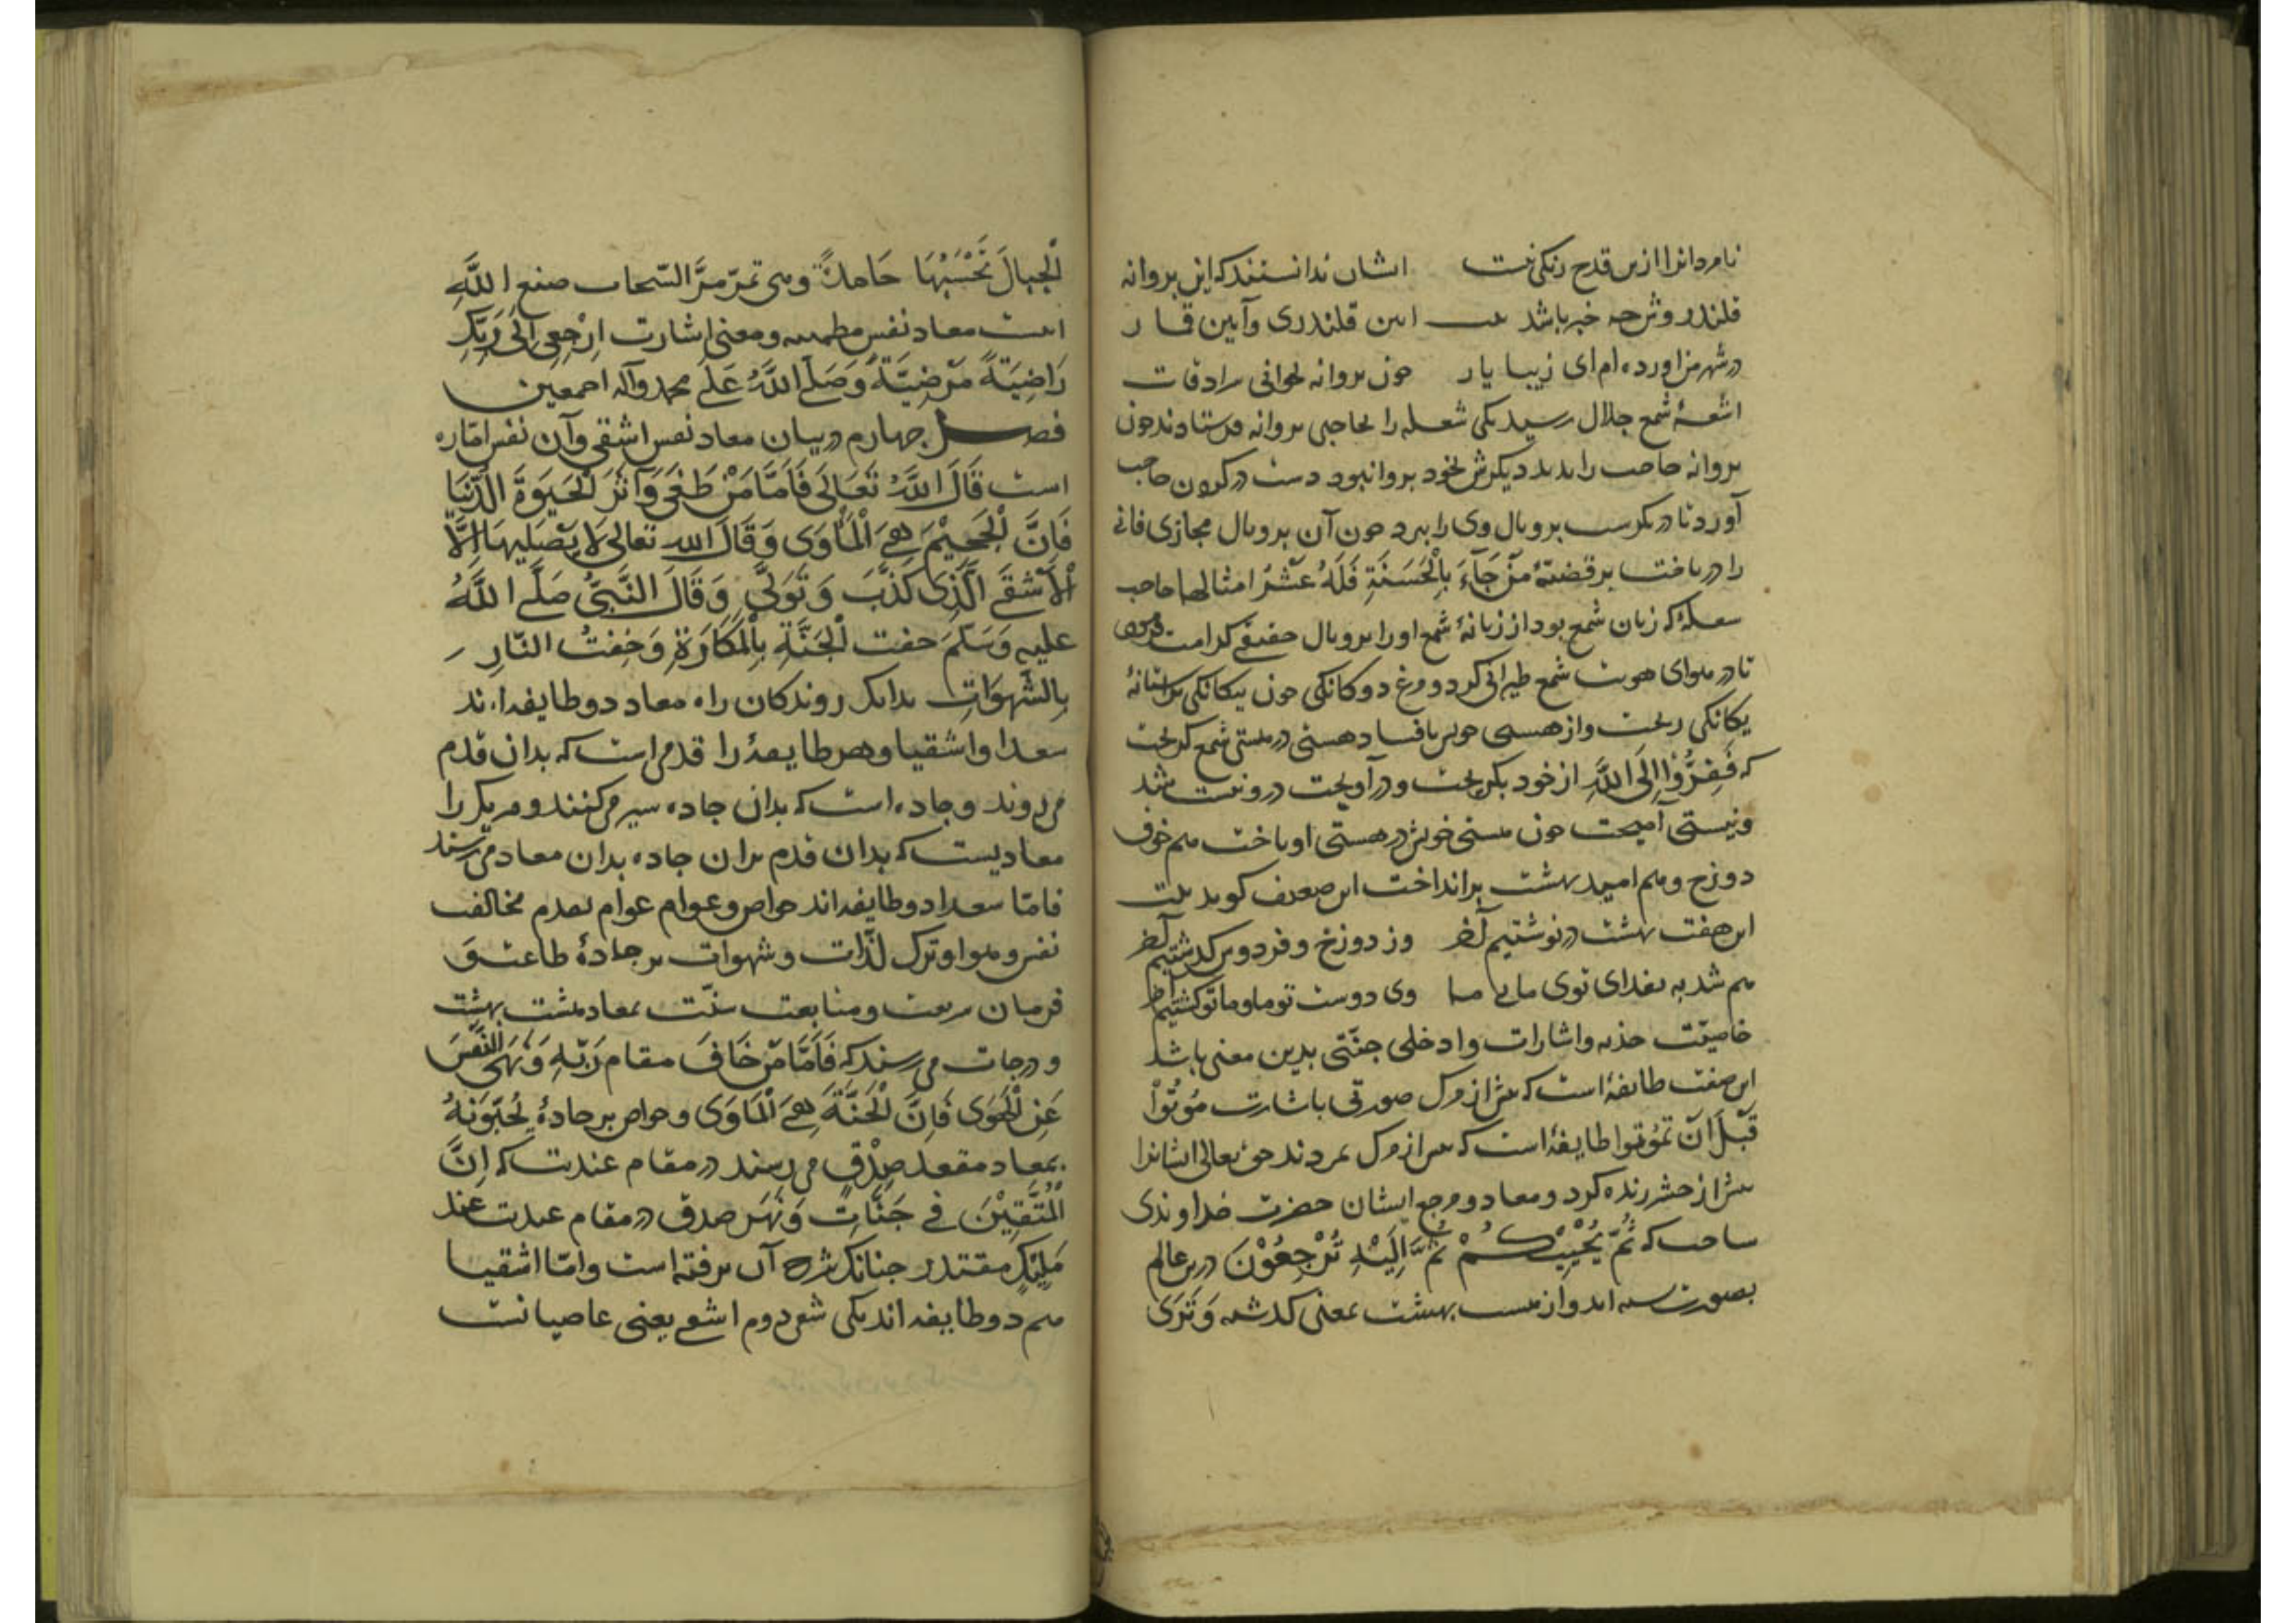 نامردانرا ازین قدح رنگی نیست ایشان ندانستند که این پروانه
قلندروش چه خبر باشد بیت این قلندری وآیین قمار
در شهر من آورده ام ای زیبا یار چون پروانه بحوالی سرادقات
اشعهٔ شمع جلال رسید یکی شعله را بحاجبی پروانه فرستادند چون
پروانه حاجب را بدید دیگرش بخود پروا نبود دست در گردن حاجب
آورد تا در نگرست پروبال وی را ببرد چون آن پروبال مجازی فانی
را درباخت بر قضیّهٔ مَنْ جَآءَ بِالْحَسَنَةِ فَلَهُ عَشْرُ امثالها حاجب
شعله که زبان شمع بود از زبانهٔ شمع او را پروبال حقیقی کرامت
تا در هوای هویت شمع طیرانی کرد و مرغ دوگانگی چون بیگانگی بر آستانهٔ
یگانگی ریخت واز هستی خویش با فساد هستی در هستی شمع گریخت
که فَفِرُّوْا اِلَی اللَّهِ از خود بگریخت ودرآویخت در ونیست شد
ونیستی آمیخت چون هستی خویش در هستی او باخت هم خوف
دوزخ وهم امید بهشت برانداخت این ضعیف گوید بیت
این هفت بهشت درنوشتیم آخر وز دوزخ و فردوس گذشتیم آخر
هم شد به فدای توی ما یی ما وی دوست تو ما وما تو گشتیم آخر
خاصیّت جذبه واشارات وادخلی جنّتی بدین معنی باشد
این صفت طایفهٔ است که پیش از مرگ صورتی باشارت مُوْتُوْا
قَبْلَ اَنْ تَمُوْتوا طایفهٔ است که پیش از مرگ بمردند حق تعالی ایشانرا
پیش از حشر زنده کرد ومعاد ومرجع ایشان حضرت خداوندی
ساخت که ثُمَّ یُحْیِیْکُمْ ثُمَّ اِلَیْهِ تُرْجِعُوْنَ درین عالم
بصورت نشسته اند واز هشت بهشت بمعنی گذشته وَتَرَی
الْجِبالَ تَحْسَبُهَا جَامِدَةً وهی تمرّ مرَّ السّحاب صنع اللَّهِ
اینست معاد نفس مطمئنه ومعنی اشارت اِرْجِعِی اِلَی رَبِّکِ
رَاضِیَةً مَرْضِیَّةً وَصَلَّی اللَّهُ عَلَی محمد وآله اجمعین
فصل چهارم در بیان معاد نفس اشقی وآن نفس امّاره
است قَالَ اللَّهُ تَعَالَی فَاَمَّا مَنْ طَغَی وَآثَرَ الْحَیَوةَ الدُّنْیَا
فَاِنَّ الْجَحِیْمَ هِیَ الْمَأْوَی وَقَالَ الله تعالی لَا یَصْلَیهَا اِلَّا
الْاَشْقَی الَّذِی کَذَّبَ وَتَوَلَّی وَقَالَ النَّبِیُّ صَلَّی اللَّهُ
علیهِ وَسَلَّمَ حفت الْجَنَّةِ بِالْمَکَارَةِ وَحُفتُ النّارِ
بِالشَّهَوَاتِ بدانک روندگان راه معاد دو طایفه اند
سعدا واشقیا وهر طایفهٔ را قدمی است که بدان قدم
می روند وجاده است که بدان جاده سیر می کنند وهر یک را
معادیست که بدان قدم بران جاده بدان معاد می رسند
فامّا سعدا دو طایفه اند خواص وعوام عوام بقدم مخالفت
نفس وهوا وترک لذّات وشهوات بر جادهٔ طاعت و
فرمان شریعت ومتابعت سنّت بمعاد هشت بهشت
ودرجات می رسند که فَاَمَّا مَنْ خَافَ مقام رَبِّهِ وَنَهَی النَّفْسَ
عَنِ الْهَوَی فَاِنَّ الْجَنَّةَ هِیَ الْمَاوَی وخواص بر جادهٔ یُحِبّوْنَهُ
بمعاد مقعد صِدْقٍ می رسند در مقام عندیت که اِنَّ
الْمُتَّقِیْنَ فِی جَنَّاتٍ وَنَهَرٍ صدق در مقام عندیت عند
مَلِیْکٍ مقتدر چنانک شرح آن برفته است وامّا اشقیا
هم دو طایفه اند یکی شقی دوم اشقی یعنی عاصیانست